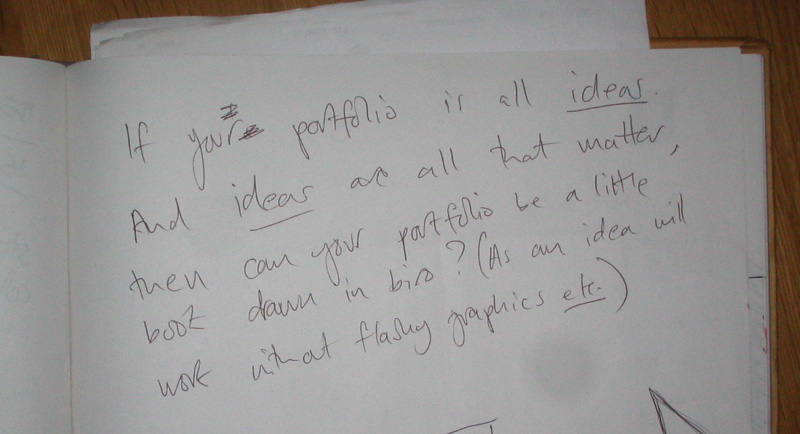 If your portfolio is all ideas.
And ideas are all that matter,
then can your portfolio be a little
book drawn in biro? (As an idea will
work without flashy graphics etc.)